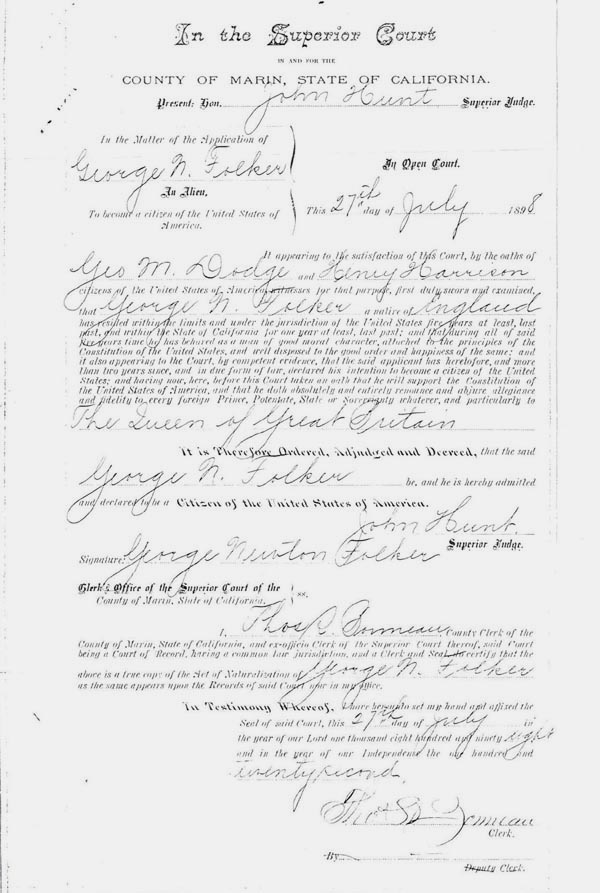 In the Superior Court
IN AND FOR THE
COUNTY OF MARIN, STATE OF CALIFORNIA.
Present: Hon. John Hunt Superior Judge.
In the Matter of the Application of
George N. Folker
An Alien,
To become a citizen of the United States of
America.
In Open Court.
This 27th day of July 1898
It appearing to the satisfaction of this Court, by the oaths of
Geo M. Dodge and Henry Harrison
citizens of the United States of America, witnesses for that purpose, first duly sworn and examined,
that George N. Folker a native of England
has resided within the limits and under the jurisdiction of the United States five years at least, last
past, and within the State of California for one year at least, last past; and that during all of said
five years time he has behaved as a man of good moral character, attached to the principles of the
Constitution of the United States, and well disposed to the good order and happiness of the same; and
it also appearing to the Court, by competent evidence, that the said applicant has heretofore, and more
than two years since, and in due form of law, declared his intention to become a citizen of the United
States; and having now, here, before this Court taken an oath that he will support the Constitution of
the United States of America, and that he doth absolutely and entirely renounce and abjure allegiance
and fidelity to every foreign Prince, Potentate, State or Sovereignty whatever, and particularly to
The Queen of Great Britain
It is Therefore Ordered, Adjudged and Decreed, that the said
George N. Folker be, and he is hereby admitted
and declared to be a Citizen of the United States of America.
John Hunt.
Superior Judge.
Signature: George Newton Folker
Clerk's Office of the Superior Court of the
County of Marin, State of California. ss.
I, Thos S. Bonneau, County Clerk of the
County of Marin, State of California, and ex-officio Clerk of the Superior Court thereof, said Court
being a Court of Record, having a common law jurisdiction, and a Clerk and Seal, do certify that the
above is a true copy of the Act of Naturalization of George N. Folker
as the same appears upon the Records of said Court now in my office.
In Testimony Whereof, I have hereunto set my hand and affixed the
Seal of said Court, this 27th day of July in
the year of our Lord one thousand eight hundred and ninety eight
and in the year of our Independence the one hundred and
twenty second.
Thos S Bonneau
Clerk.
By
Deputy Clerk.